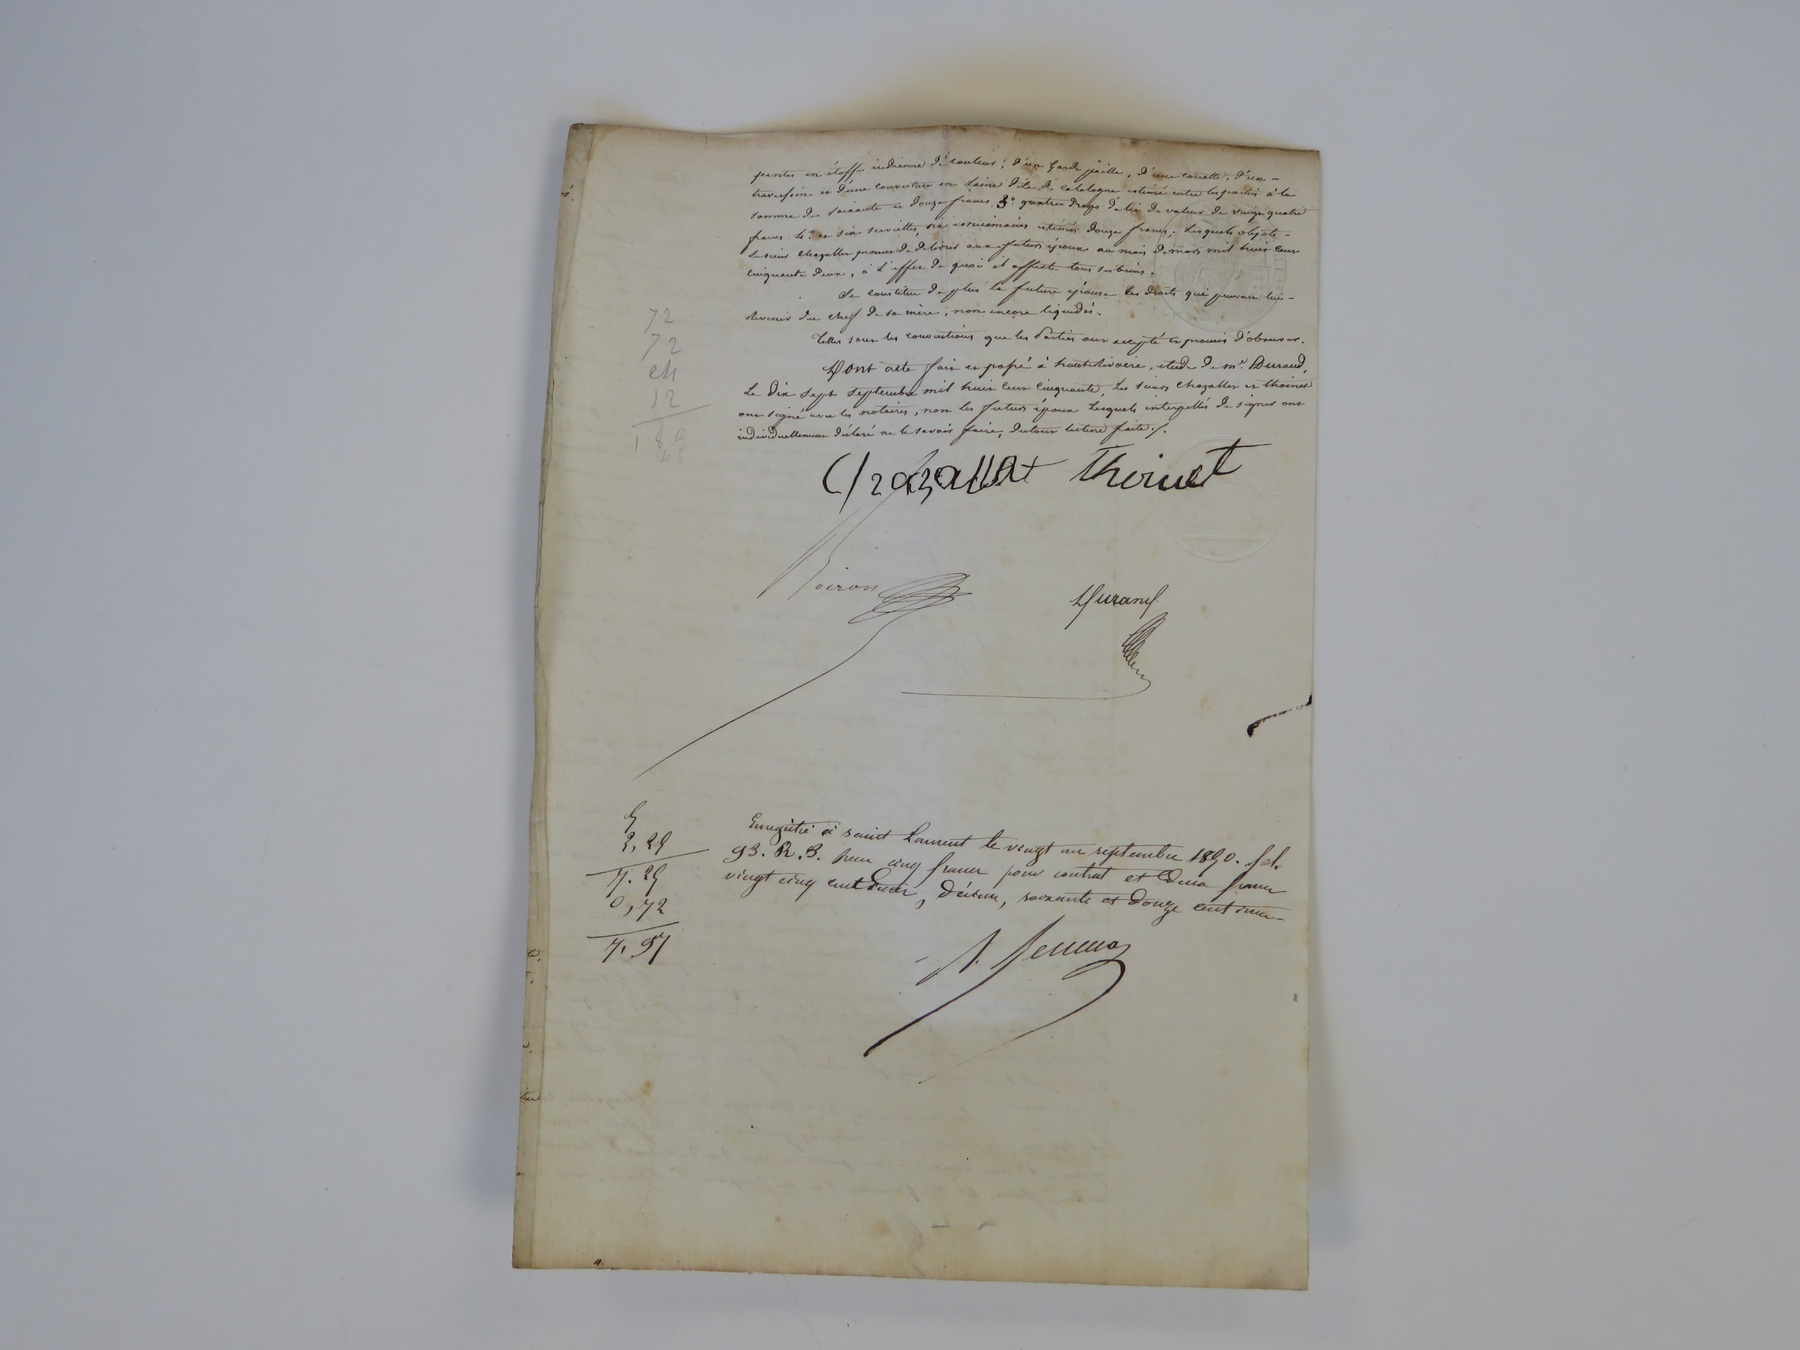 pentes en étoffe indienne de couleurs, d'un garde paille, d'une couette, d'un
traversin et d'une couverture en laine dite de Catalogne estimé entre les parties à la
somme de soixante et douze francs. 3° quatre draps de lit de valeur de vingt quatre
francs 4° et six serviettes, six essuiemains estimés douze francs; lesquels objets
le sieur Chazallet promet de délivrer aux futurs époux au mois de mars mil huit cent
cinquante deux, à l'effet de quoi il affecte tous ses biens.
Se constitue de plus la future épouse les droits qui peuvent lui
revenir du chef de sa mère, non encore liquidés.
Telles sont les conventions que les Parties ont accepté et promis d'observer.
Dont acte fait et passé à hauterivoire, étude de me. Durand,
Le dix sept septembre mil huit cent cinquante, les sieurs Chazallet et thoinet
ont signé avec les notaires, non les futurs époux lesquels interpellés de signer ont
individuellement déclaré ne le savoir faire, du tout lecture faite./.
72
72
24
12
180
Chazallet Thoinet
Boiron
Durand
Enregistré à saint Laurent le vingt un septembre 1850. fol.
93. R. 3. Reçu cinq francs pour contrat et deux francs
vingt cinq centimes, décime, soixante et douze centimes
5
2,25
7.25
0,72
7.97